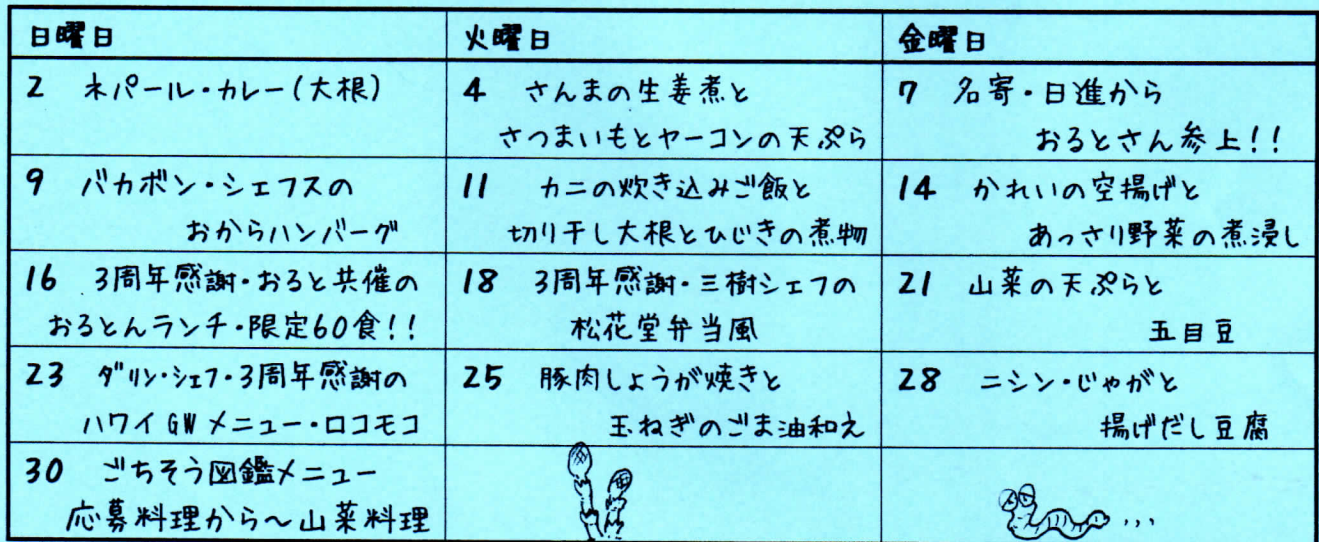 日曜日 火曜日 金曜日
2 ネパール・カレー(大根)
4 さんまの生姜煮と
さつまいもとヤーコンの天ぷら
7 名寄・日進から
おるとさん参上!!
9 バカボン・シェフスの
おからハンバーグ
11 カニの炊き込みご飯と
切り干し大根とひじきの煮物
14 かれいの空揚げと
あっさり野菜の煮浸し
16 3周年感謝・おると共催の
おるとんランチ・限定60食!!
18 3周年感謝・三樹シェフの
松花堂弁当風
21 山菜の天ぷらと
五目豆
23 ダーリン・シェフ・3周年感謝の
ハワイGWメニュー・ロコモコ
25 豚肉しょうが焼きと
玉ねぎのごま油和え
28 ニシン・じゃがと
揚げだし豆腐
30 ごちそう図鑑メニュー
応募料理から〜山菜料理